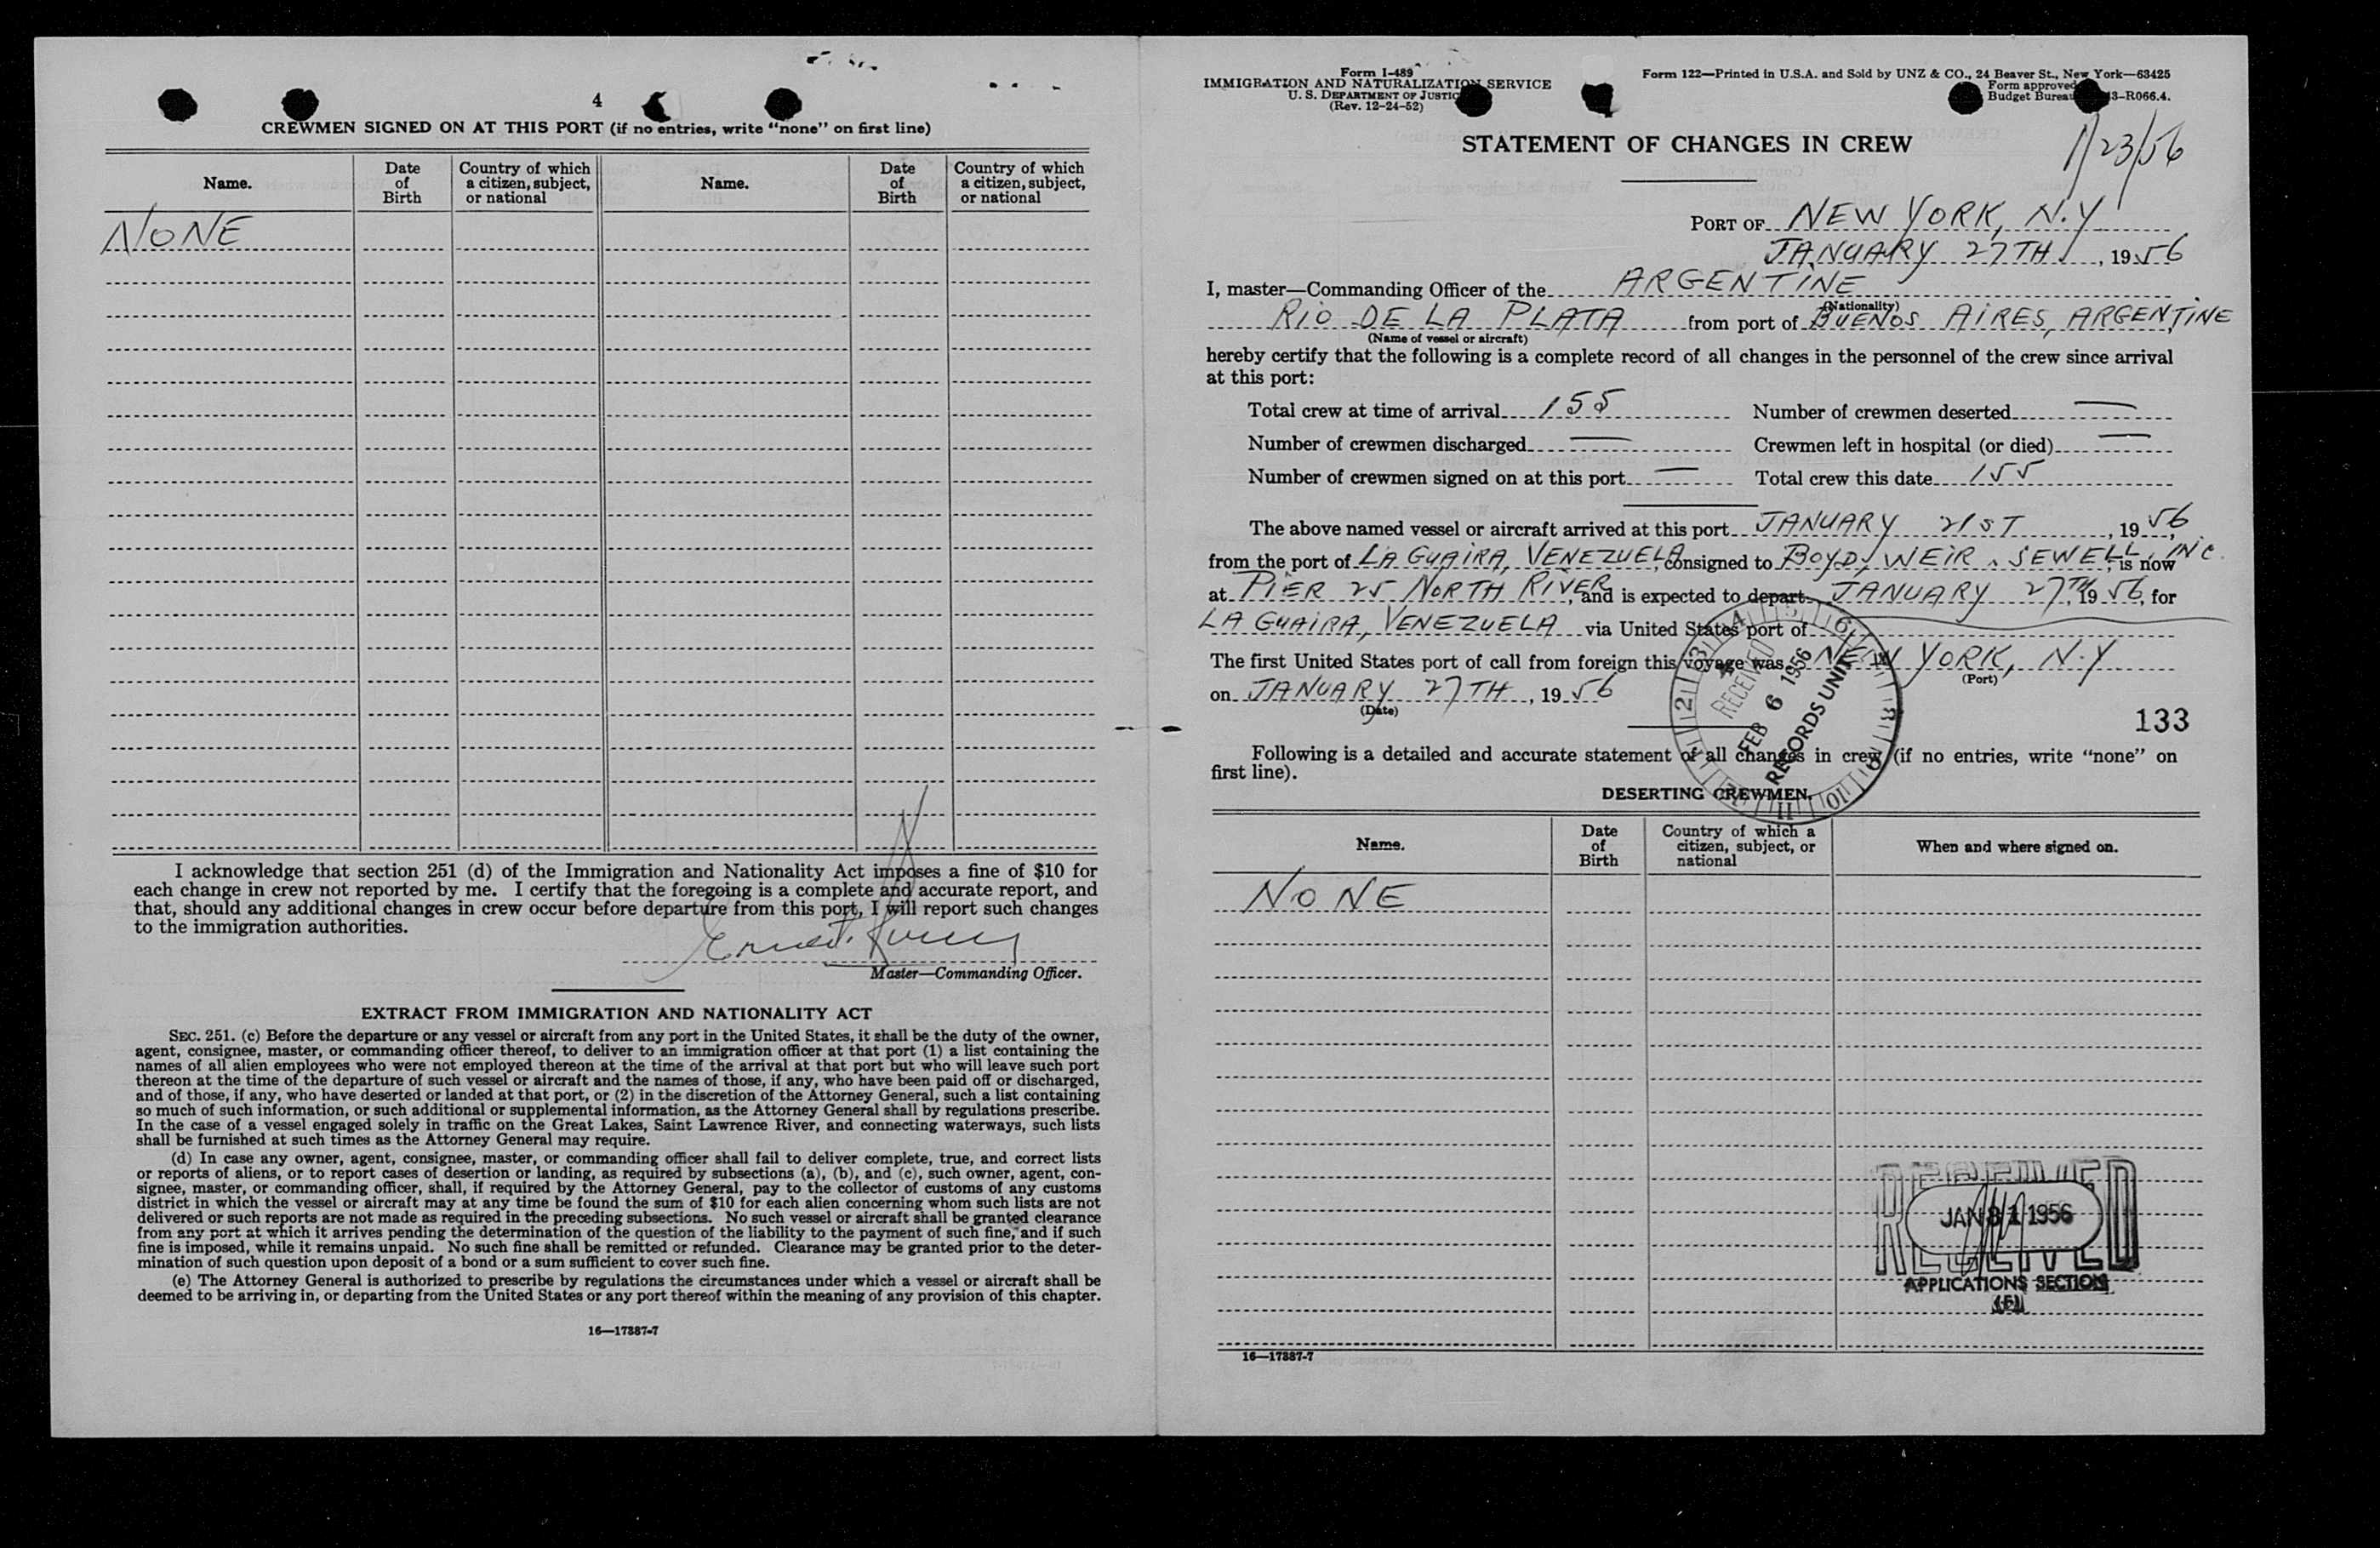 4
CREWMEN SIGNED ON AT THIS PORT (if no entries, write "none" on first line)
Name. Date of Birth Country of which a citizen, subject, or national Name. Date of Birth Country of which a citizen, subject, or national
NONE
I acknowledge that section 251 (d) of the Immigration and Nationality Act imposes a fine of $10 for
each change in crew not reported by me. I certify that the foregoing is a complete and accurate report, and
that, should any additional changes in crew occur before departure from this port, I will report such changes
to the immigration authorities.
Master—Commanding Officer.
EXTRACT FROM IMMIGRATION AND NATIONALITY ACT
SEC. 251. (c) Before the departure or any vessel or aircraft from any port in the United States, it shall be the duty of the owner,
agent, consignee, master, or commanding officer thereof, to deliver to an immigration officer at that port (1) a list containing the
names of all alien employees who were not employed thereon at the time of the arrival at that port but who will leave such port
thereon at the time of the departure of such vessel or aircraft and the names of those, if any, who have been paid off or discharged,
and of those, if any, who have deserted or landed at that port, or (2) in the discretion of the Attorney General, such a list containing
so much of such information, or such additional or supplemental information, as the Attorney General shall by regulations prescribe.
In the case of a vessel engaged solely in traffic on the Great Lakes, Saint Lawrence River, and connecting waterways, such lists
shall be furnished at such times as the Attorney General may require.
(d) In case any owner, agent, consignee, master, or commanding officer shall fail to deliver complete, true, and correct lists
or reports of aliens, or to report cases of desertion or landing, as required by subsections (a), (b), and (c), such owner, agent, con-
signee, master, or commanding officer, shall, if required by the Attorney General, pay to the collector of customs of any customs
district in which the vessel or aircraft may at any time be found the sum of $10 for each alien concerning whom such lists are not
delivered or such reports are not made as required in the preceding subsections. No such vessel or aircraft shall be granted clearance
from any port at which it arrives pending the determination of the question of the liability to the payment of such fine, and if such
fine is imposed, while it remains unpaid. No such fine shall be remitted or refunded. Clearance may be granted prior to the deter-
mination of such question upon deposit of a bond or a sum sufficient to cover such fine.
(e) The Attorney General is authorized to prescribe by regulations the circumstances under which a vessel or aircraft shall be
deemed to be arriving in, or departing from the United States or any port thereof within the meaning of any provision of this chapter.
16—17887-7
Form I-489
IMMIGRATION AND NATURALIZATION SERVICE
U. S. DEPARTMENT OF JUSTIC
(Rev. 12-24-52)
Form 122—Printed in U.S.A. and Sold by UNZ & CO., 24 Beaver St., New York—63425
Form approved
Budget Bureau 3-R066.4.
STATEMENT OF CHANGES IN CREW
1/23/56
PORT OF NEW YORK, N.Y
JANUARY 27TH, 1956
I, master—Commanding Officer of the ARGENTINE
(Nationality)
RIO DE LA PLATA from port of BUENOS AIRES, ARGENTINE
(Name of vessel or aircraft)
hereby certify that the following is a complete record of all changes in the personnel of the crew since arrival
at this port:
Total crew at time of arrival 155 Number of crewmen deserted —
Number of crewmen discharged — Crewmen left in hospital (or died) —
Number of crewmen signed on at this port — Total crew this date 155
The above named vessel or aircraft arrived at this port JANUARY 21ST, 1956,
from the port of LA GUAIRA, VENEZUELA, consigned to BOYD, WEIR & SEWELL, INC., is now
at PIER 25 NORTH RIVER, and is expected to depart JANUARY 27TH, 1956, for
LA GUAIRA, VENEZUELA via United States port of
The first United States port of call from foreign this voyage was NEW YORK, N.Y
(Port)
on JANUARY 27TH, 1956
(Date)
RECEIVED
FEB 6 1956
RECORDS UNIT
133
Following is a detailed and accurate statement of all changes in crew (if no entries, write "none" on
first line).
DESERTING CREWMEN.
Name. Date of Birth Country of which a citizen, subject, or national When and where signed on.
NONE
RECEIVED
JAN 31 1956
APPLICATIONS SECTION
16—17887-7